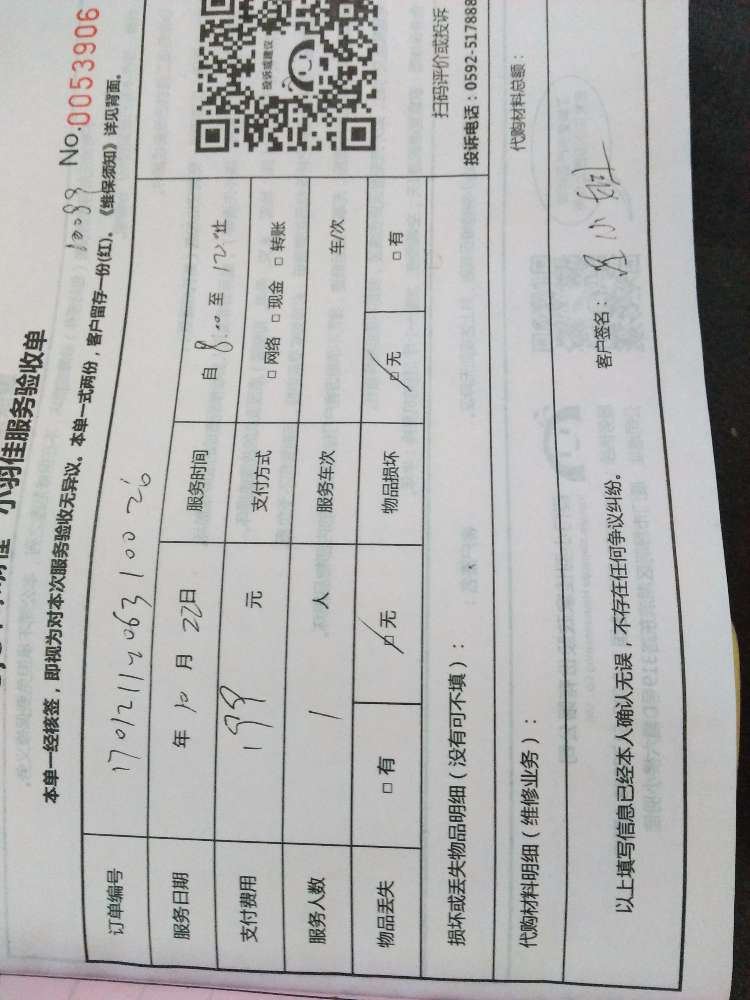 小羽佳服务验收单
No.0053906
本单一经核签，即视为对本次服务验收无异议。本单一式两份，客户留存一份(红)。《维保须知》详见背面。
订单编号 17012112063100 26
服务日期 年 10 月 22 日 服务时间 自 8:00 至 12 止
支付费用 199 元 支付方式 □ 网络 □ 现金 □ 转账
服务人数 1 人 服务车次 车/次
物品丢失 □ 有 □ 无 物品损坏 □ 无 □ 有
投诉或建议
扫码评价或投诉
投诉电话：0592-517888
损坏或丢失物品明细（没有可不填）：
代购材料明细（维修业务）： 代购材料总额：
以上填写信息已经本人确认无误，不存在任何争议纠纷。 客户签名：